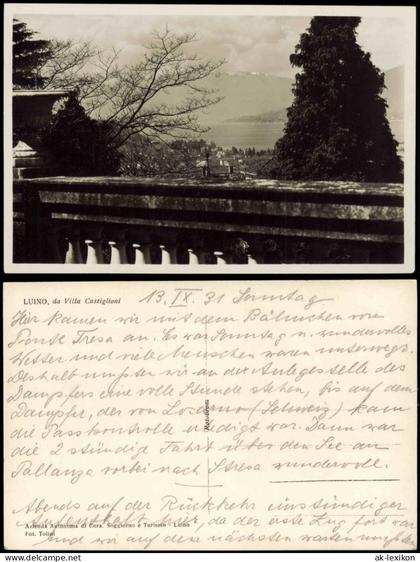 LUINO, da Villa Castiglioni
13. IX. 31 Sonntag
Hier kamen wir mit dem Bähnchen von
Ponte Tresa an. Es war Sonntag u. wundervolles
Wetter und viele Menschen waren unterwegs.
Deshalb mußten wir an der Anlegestelle des
Dampfers eine volle Stunde stehen, bis auf dem
Dampfer, der von Locarno (Schweiz) kam
die Passkontrolle erledigt war. Dann war
die 2 stündig Fahrt über den See an
Pallanza vorbei nach Stresa wundervoll.
Abends auf der Rückkehr einstündiger
Aufenthalt hier, da der erste Zug fort war
und wir auf den nächsten warten mußten
Azienda Autonoma di Cura, Soggiorno e Turismo - Luino
Fot. Tollini
© www.ak-lexikon.de